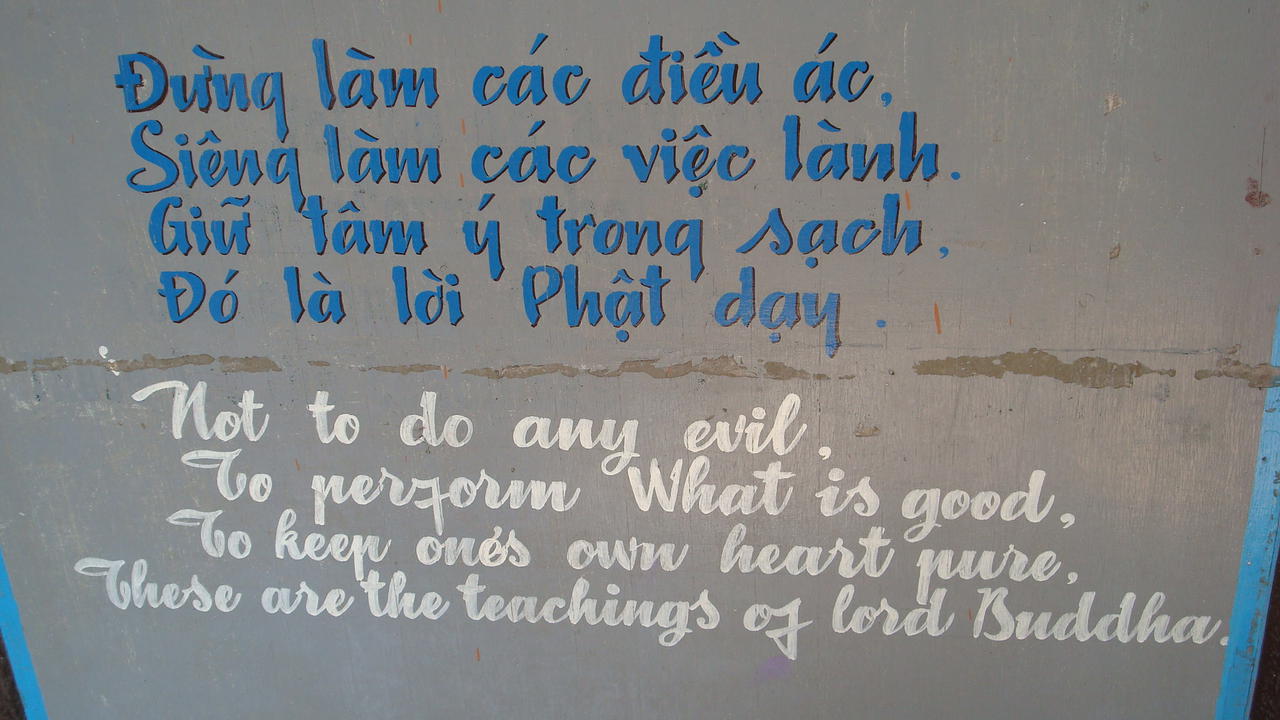 Đừng làm các điều ác,
Siêng làm các việc lành.
Giữ tâm ý trong sạch,
Đó là lời Phật dạy.
Not to do any evil,
To perform What is good,
To keep one's own heart pure,
These are the teachings of lord Buddha.